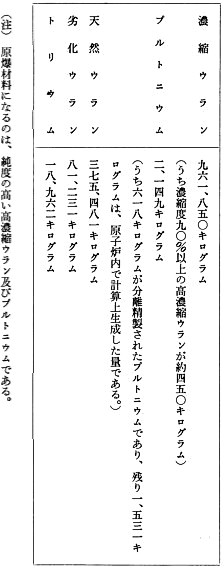 濃縮ウラン
九六一、八五〇キログラム
(うち濃縮度九〇%以上の高濃縮ウランが約四五〇キログラム)
プルトニウム
二、一四九キログラム
(うち六一八キログラムが分離精製されたプルトニウムであり、残り一、五三一キ
ログラムは、原子炉内で計算上生成した量である。)
天然ウラン
三七五、四八一キログラム
劣化ウラン
八一、二三一キログラム
トリウム
一八、九六二キログラム
(注) 原爆材料になるのは、純度の高い高濃縮ウラン及びプルトニウムである。